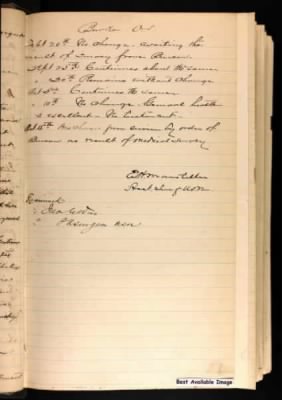 Sept 20th No change. Awaiting the
result of Survey from Bureau.
Sept 25th Continues about the same
" 30th Remains without change
Oct 5th Continues the same
" 10th No change. General health
is excellent. No treatment.
Oct 15th from service by order of
Bureau as result of Medical Survey
Asst Surg USN
Surgeon USN
Best Available Image